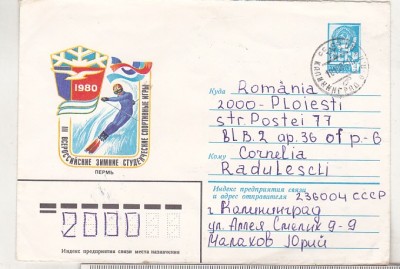 1980
III ВСЕРОССИЙСКИЕ ЗИМНИЕ СТУДЕНЧЕСКИЕ СПОРТИВНЫЕ ИГРЫ
ПЕРМЬ
КАЛИНИНГРАД
Куда România
2000 - Ploiesti
str. Postei 77
BL.B.2 ap.36 of p-6
Кому Cornelia
Radulescu
Индекс предприятия связи
и адрес отправителя 236004 СССР
г Калининград
ул. Аллея Смелых 9-9
Малахов Юрий
2000
Индекс предприятия связи места назначения